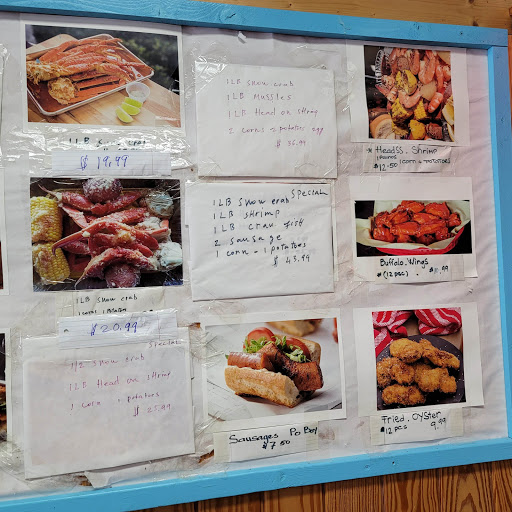 1LB Snow crab
$19.99
1LB Snow crab
1LB Mussles
1LB Head on shrimp
2 corns
potatoes egg
Headss. Shrimp
(corn + potatoes)
$12.50
Special
1LB Snow crab
1LB shrimp
1LB craw fish
2 sausage
1 corn - 1 potatoes
$43.99
Buffalo. Wings
(12 pcs)
1LB Snow crab
$20.99
Special
1/2 Snow crab
1LB Head on shrimp
1 corn
potatoes
Sausages Po Boy
$7.50
Fried. Oyster
12 pcs 9.99